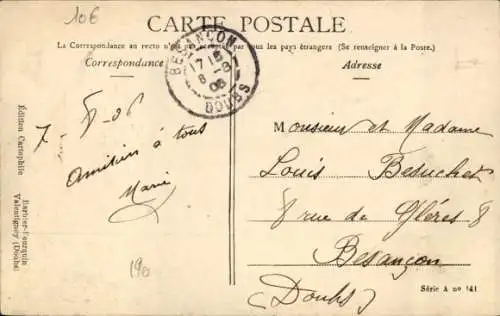 10€
CARTE POSTALE
La Correspondance au recto n'est pas acceptée par tous les pays étrangers (Se renseigner à la Poste.)
Correspondance
Adresse
BESANÇON
DOUBS
7-8-06
Amitiés à tous
Marie
Monsieur et Madame
Louis Beduchet
8 rue de Glères 8
Besançon
(Doubs)
Série A no 141
Édition Cartophile
Barbier-Fourquin
Valentigney (Doubs)
190